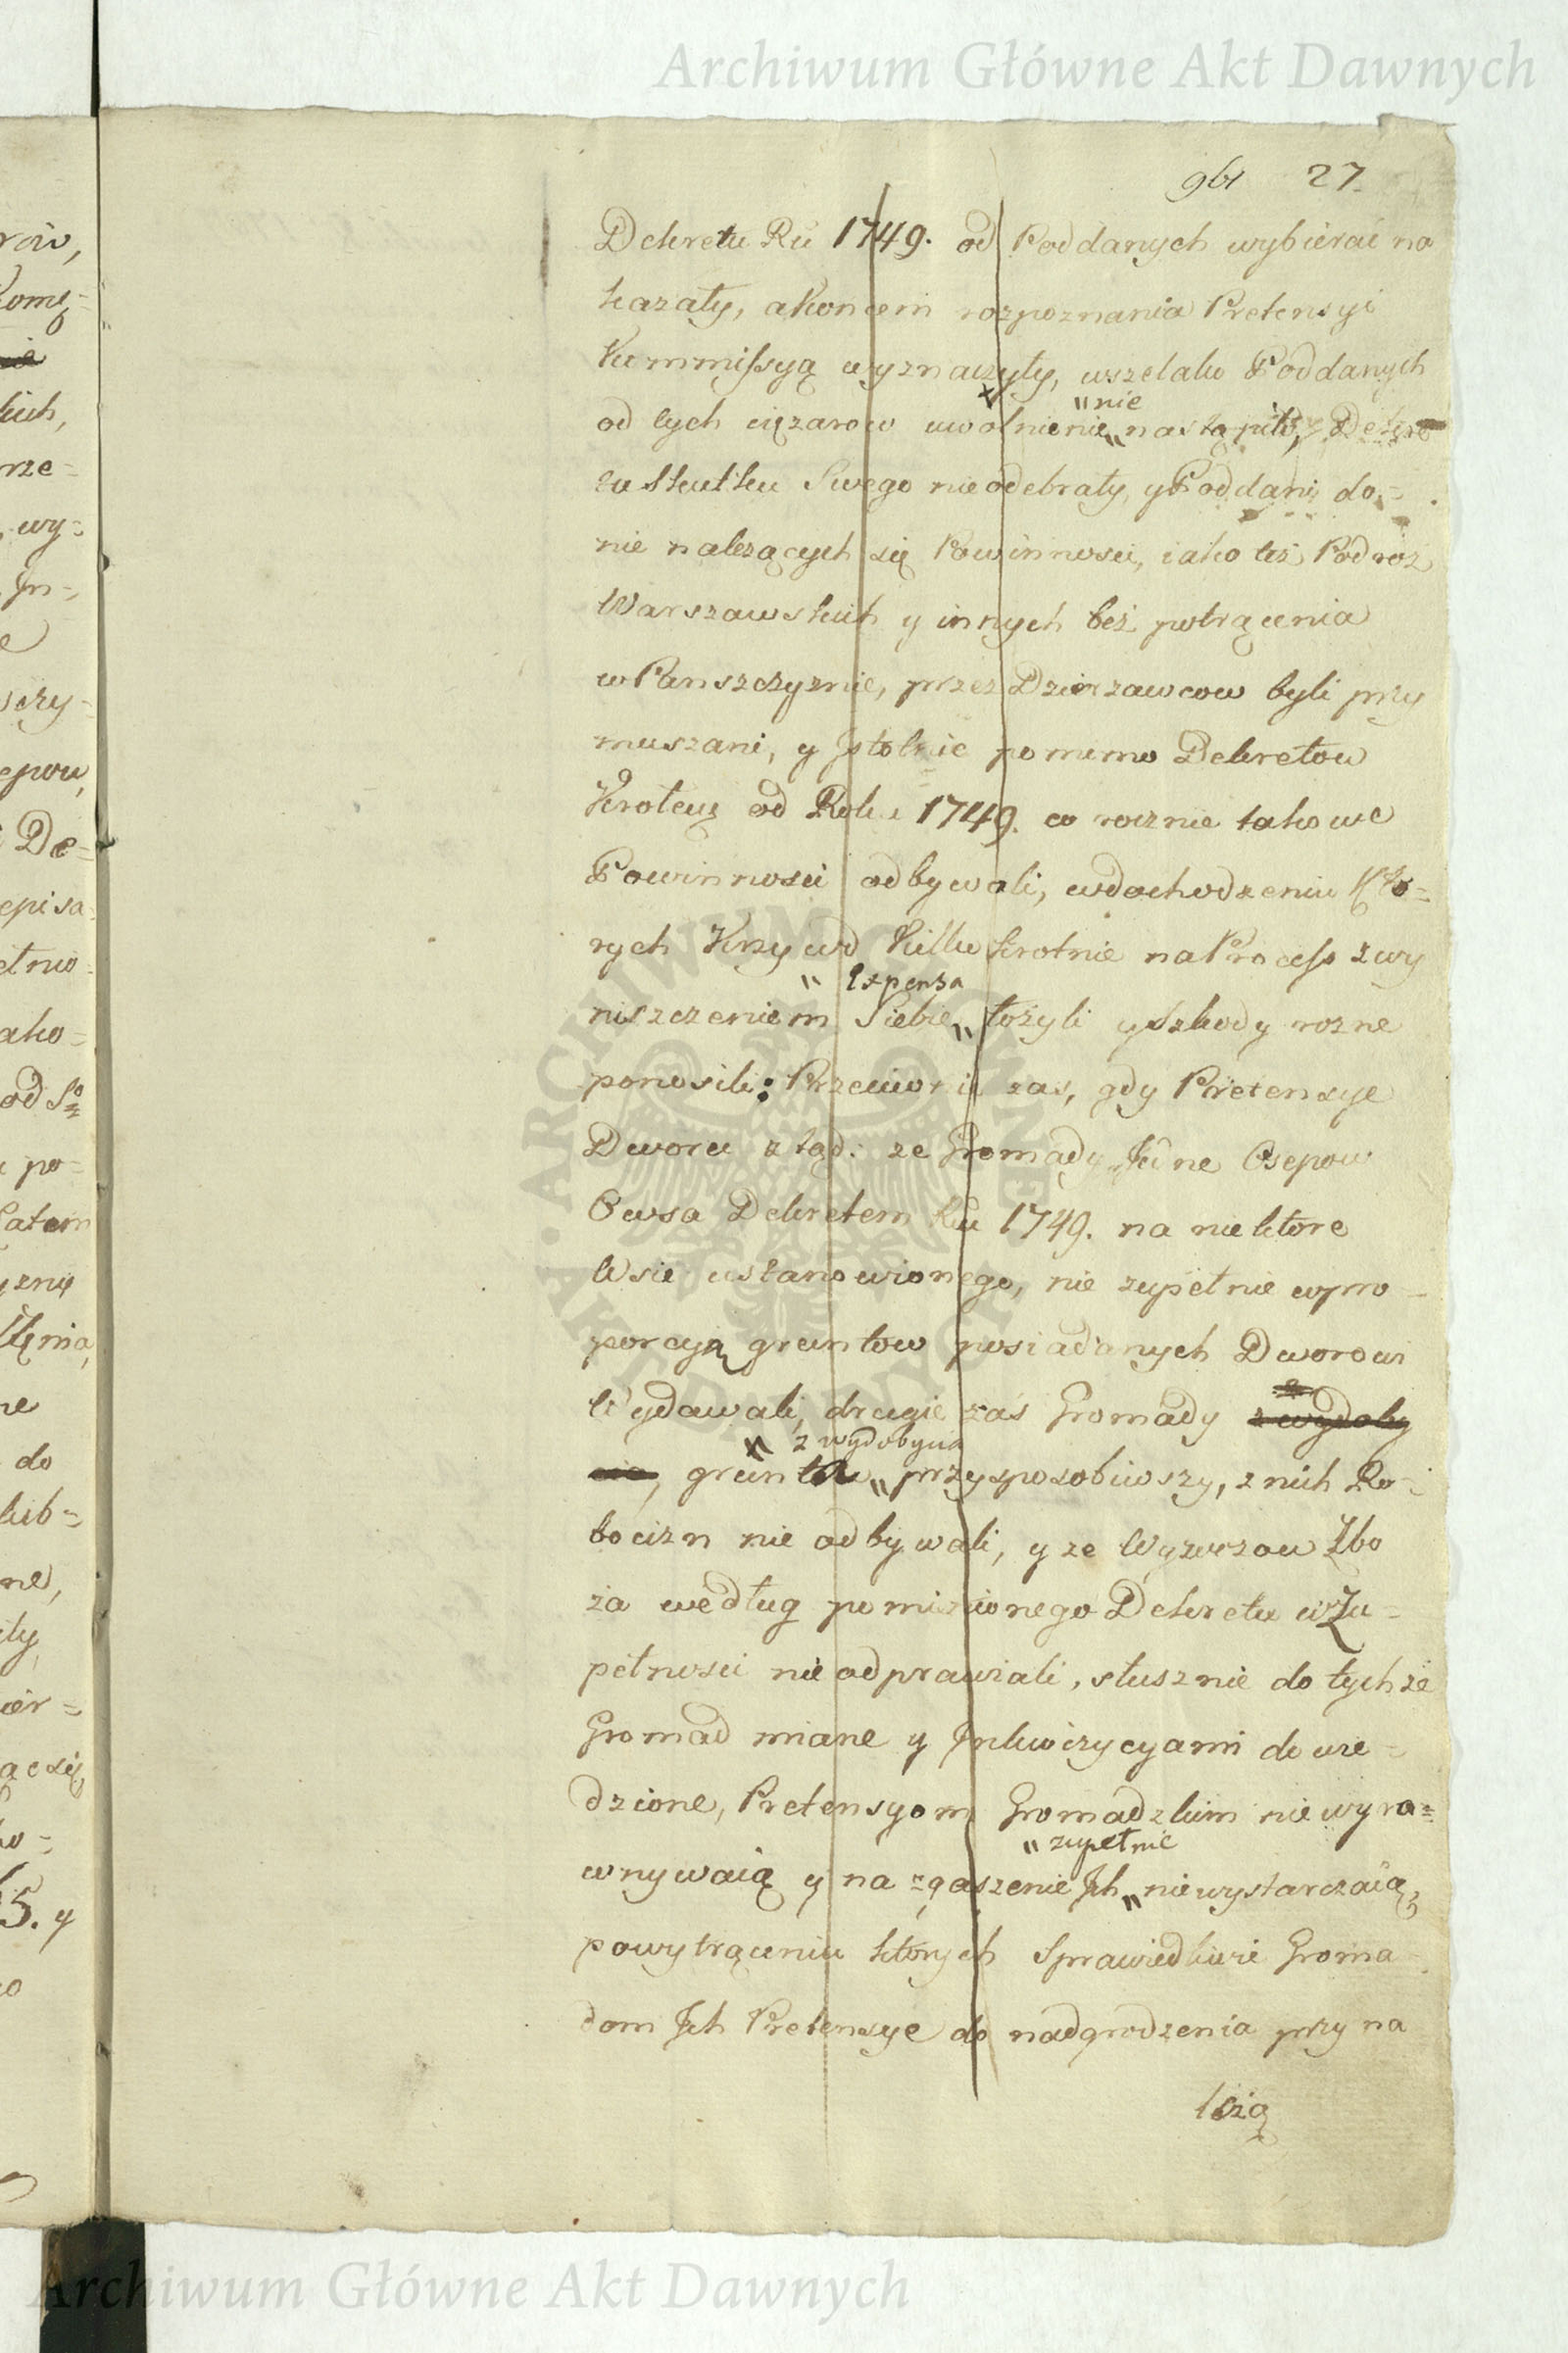 Archiwum Główne Akt Dawnych
27.
Dekretu Ru 1749. od Poddanych wybierać na
kazały, a koncem rozpoznania Pretensyi
Kommissyą wyznaczyły, wszelako Poddanych
"nie
od tych ciężarow uwolnienie„ nastąpiło, Dekre
ta skutku Swego nieodebrały, y Poddani do
nie należących się Powinnosci, iako też Podroż
Warszawskich y innych bez potrącenia
w Panszczyznie, przez Dzierzawcow byli przy
muszani, y Istotnie pomimo Dekretow
Krolew od Roku 1749. co rocznie takowe
Powinnosci odbywali, w dochodzeniu Kto=
rych Krzywd kilkukrotnie na Process z wy
" Expensa
niszczeniem Siebie„ łożyli y szkody rozne
ponosili: Przeciwnie zas, gdy Pretensye
Dworu ztąd: ze Gromady Jedne Osepow
Owsa Dekretem Ru 1749. na niektore
Wsie ustanowionego, nie zupełnie w pro
porcyą gruntow posiadanych Dworowi
Wydawali, drugie zaś Gromady z wydoby
" z wydobycia
cia, grunta„ przysposobiwszy, z nich Ro-
bocizn nie odbywali, y ze Wywozow Zbo
ża według pomienionego Dekretu w Zu-
pełnosci nie odprawiali, słusznie do tychże
Gromad miane y Inkwizycyami dowie-
dzione, Pretensyom Gromadzkim nie wyro=
" zupełnie
wnywaią y na zgaszenie Ich„ nie wystarczaią,
po wytrąceniu których Sprawiedliwie Groma
dom Ich Pretensye do nadgrodzenia przyna
leżą
row,
Kome=
kich,
rze=
wy=
Jn=
e
szy=
epow,
De=
episa
ełno
ako=
od So
po=
Latem
yznę
ne
do
lub=
ne,
iły
ier=
ącsię,
o=
5. y
o
ARCHIWUM GŁÓWNE AKT DAWNYCH
Archiwum Główne Akt Dawnych